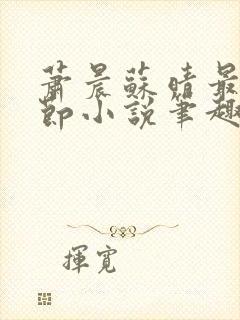 蕭晨蘇晴最
節小說筆趣
揮寬